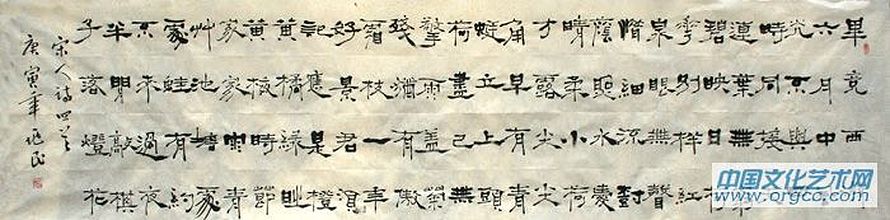 畢竟西
六月中
光不與
時同接
蓮葉無
碧映日荷
花別样紅
泉眼無聲
惜細流對
蔭照水愛
晴柔小荷
才露尖尖
角早有青
蜓立上頭
荷盡已無
擎雨蓋菊
殘猶有傲
霜枝一年
好景君須
記應是橙
黄橘緑時
黄梅時節
家家雨青
艸池塘處
處蛙有約
不來過夜
半閒敲棋
子落燈花
宋人詩四首
庚寅年
中国文化艺术网
www.orgcc.com